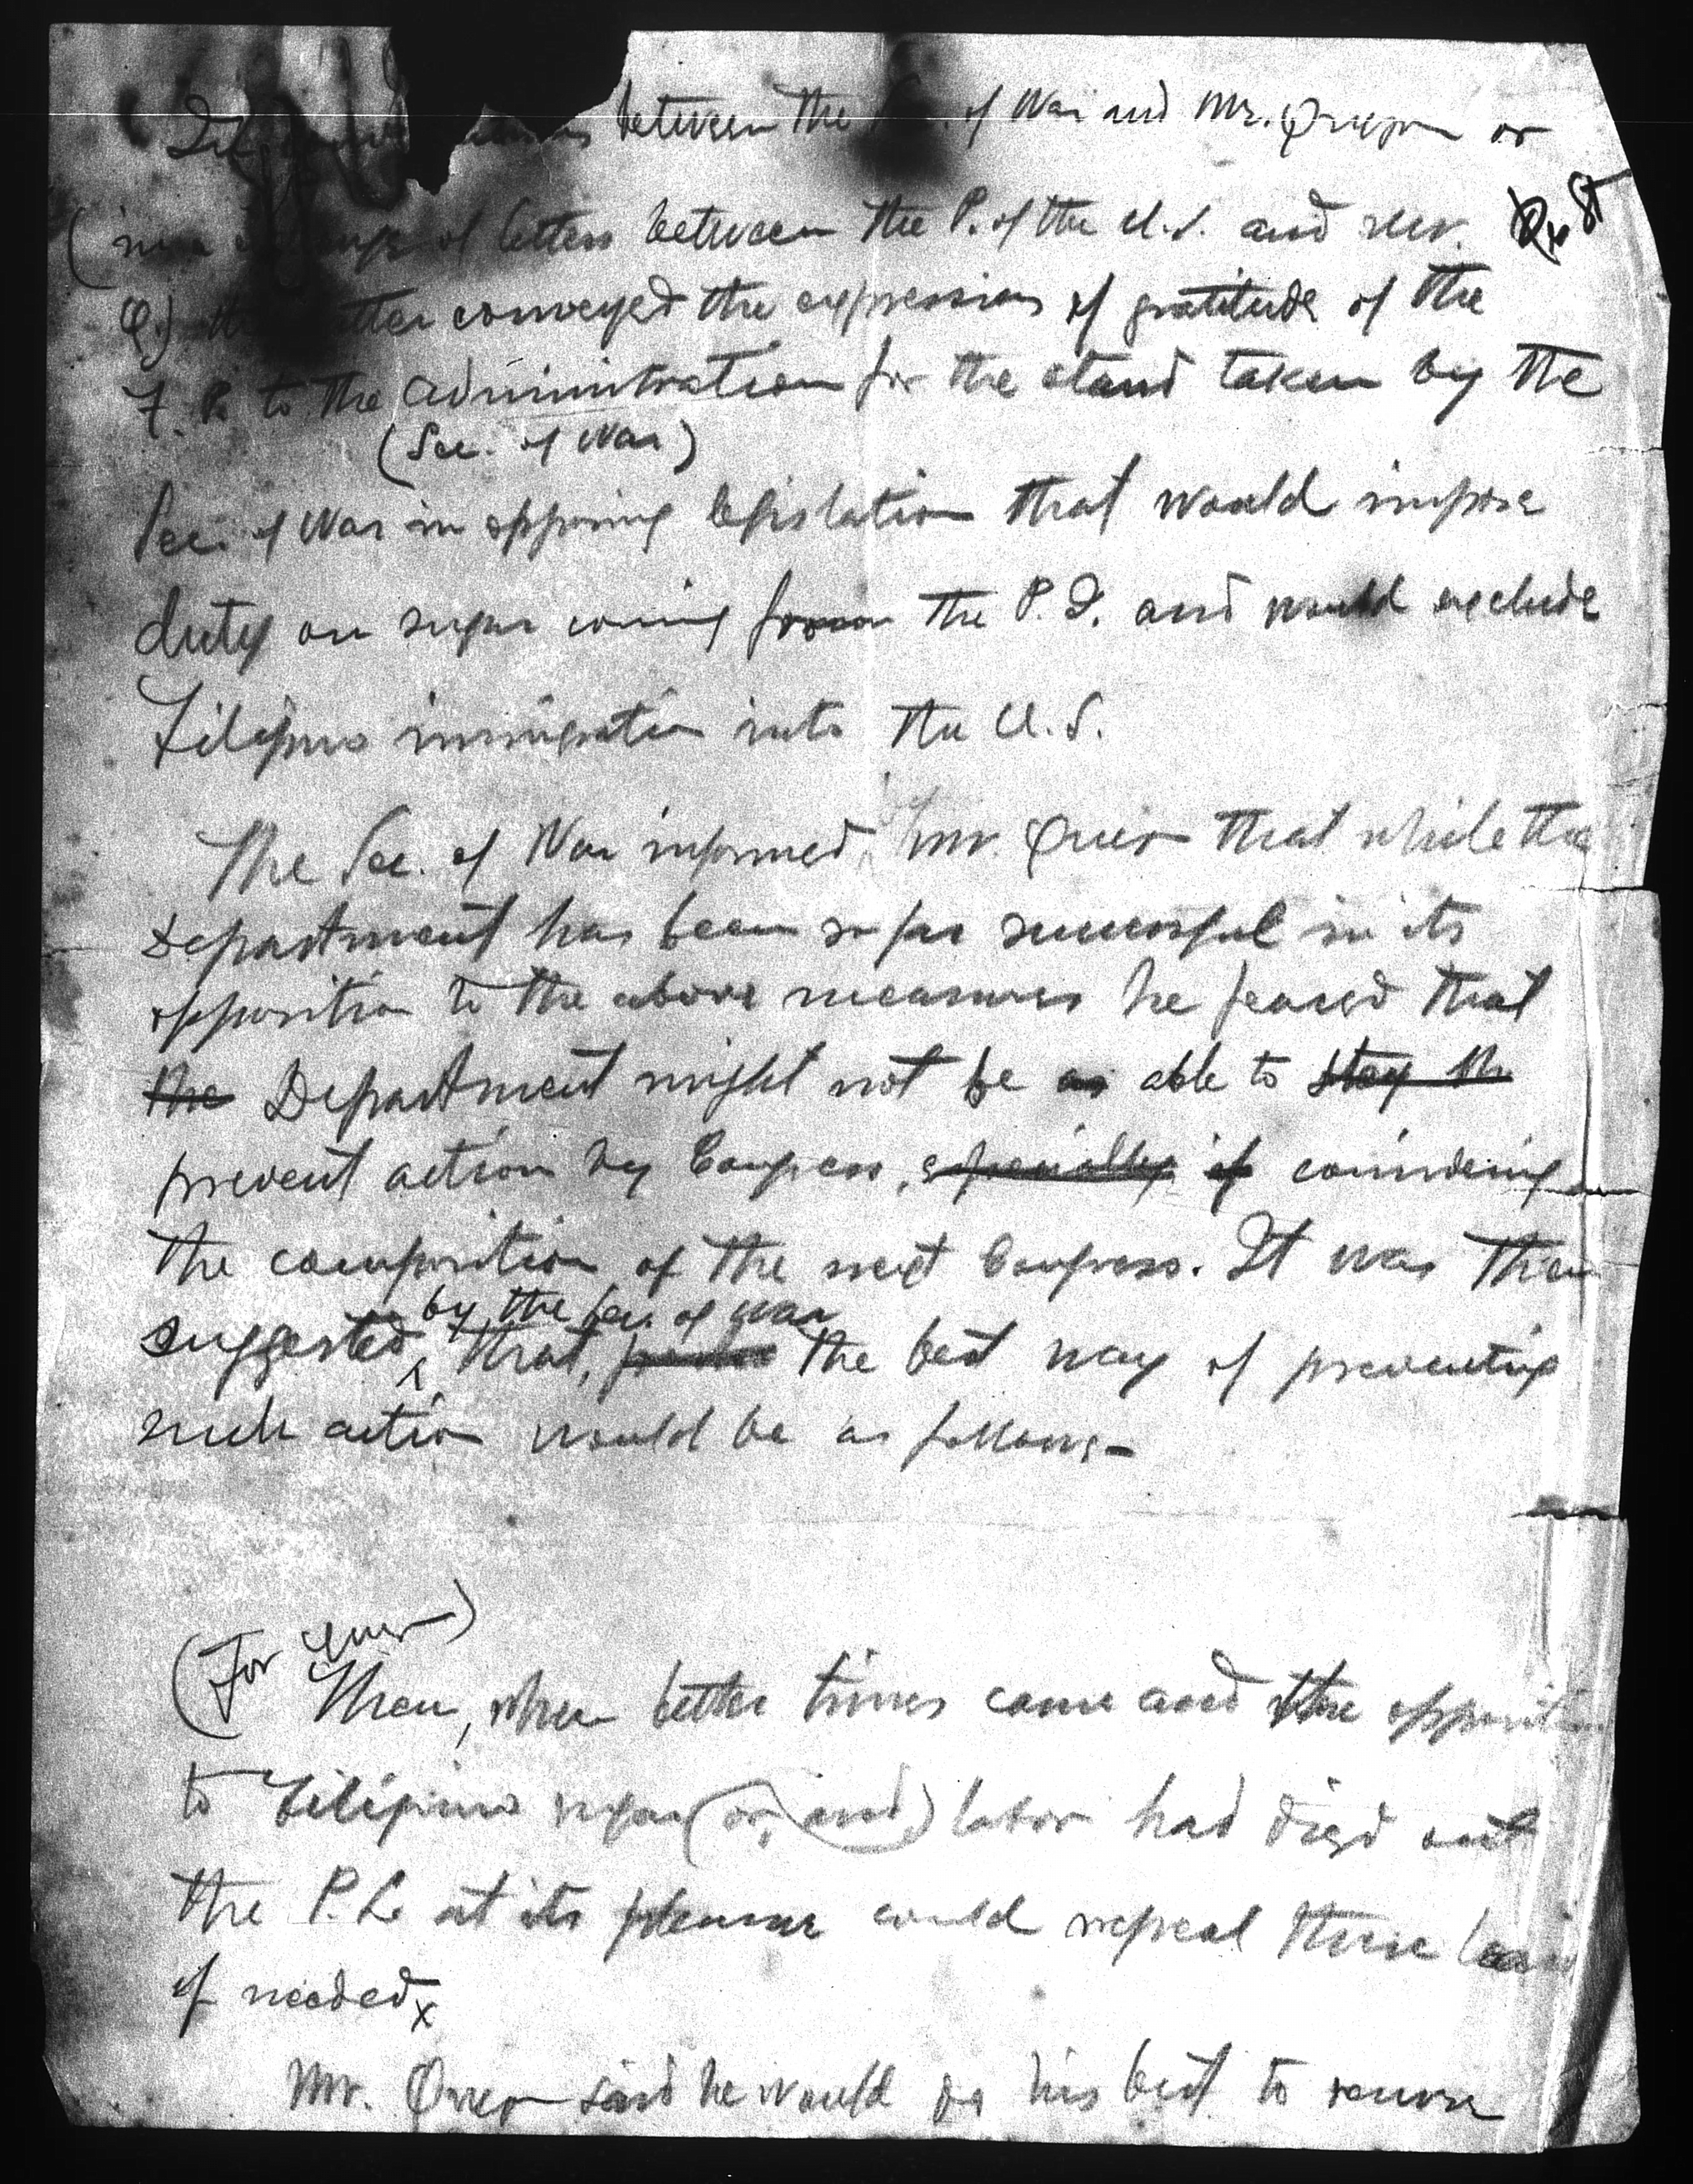 between the of War and Mr. Quezon or
of letters between the P. of the U.S. and
Q.) the latter conveyed the expression of gratitude of the
to the administration for the stand taken by the
(Sec. of War)
Sec. of War in opposing legislation that would impose
duty on sugar coming from the P.I. and would exclude
Filipino immigration into the U.S.
The Sec. of War informed Mr. that while the
Department has been so far successful in its
opposition to the above measures he feared that
the Department might not be as able to stay th
prevent action by Congress, especially if considering
the composition of the next Congress. It was then
by the Sec. of War
suggested, that, the best way of preventing
such action would be as follows-
(For
Then, when better times came and the opposition
to Filipino sugar (or, and) labor had died out
the P.L. at its pleasure could repeal these laws
if needed x
Mr. Quezon said he would do his best to